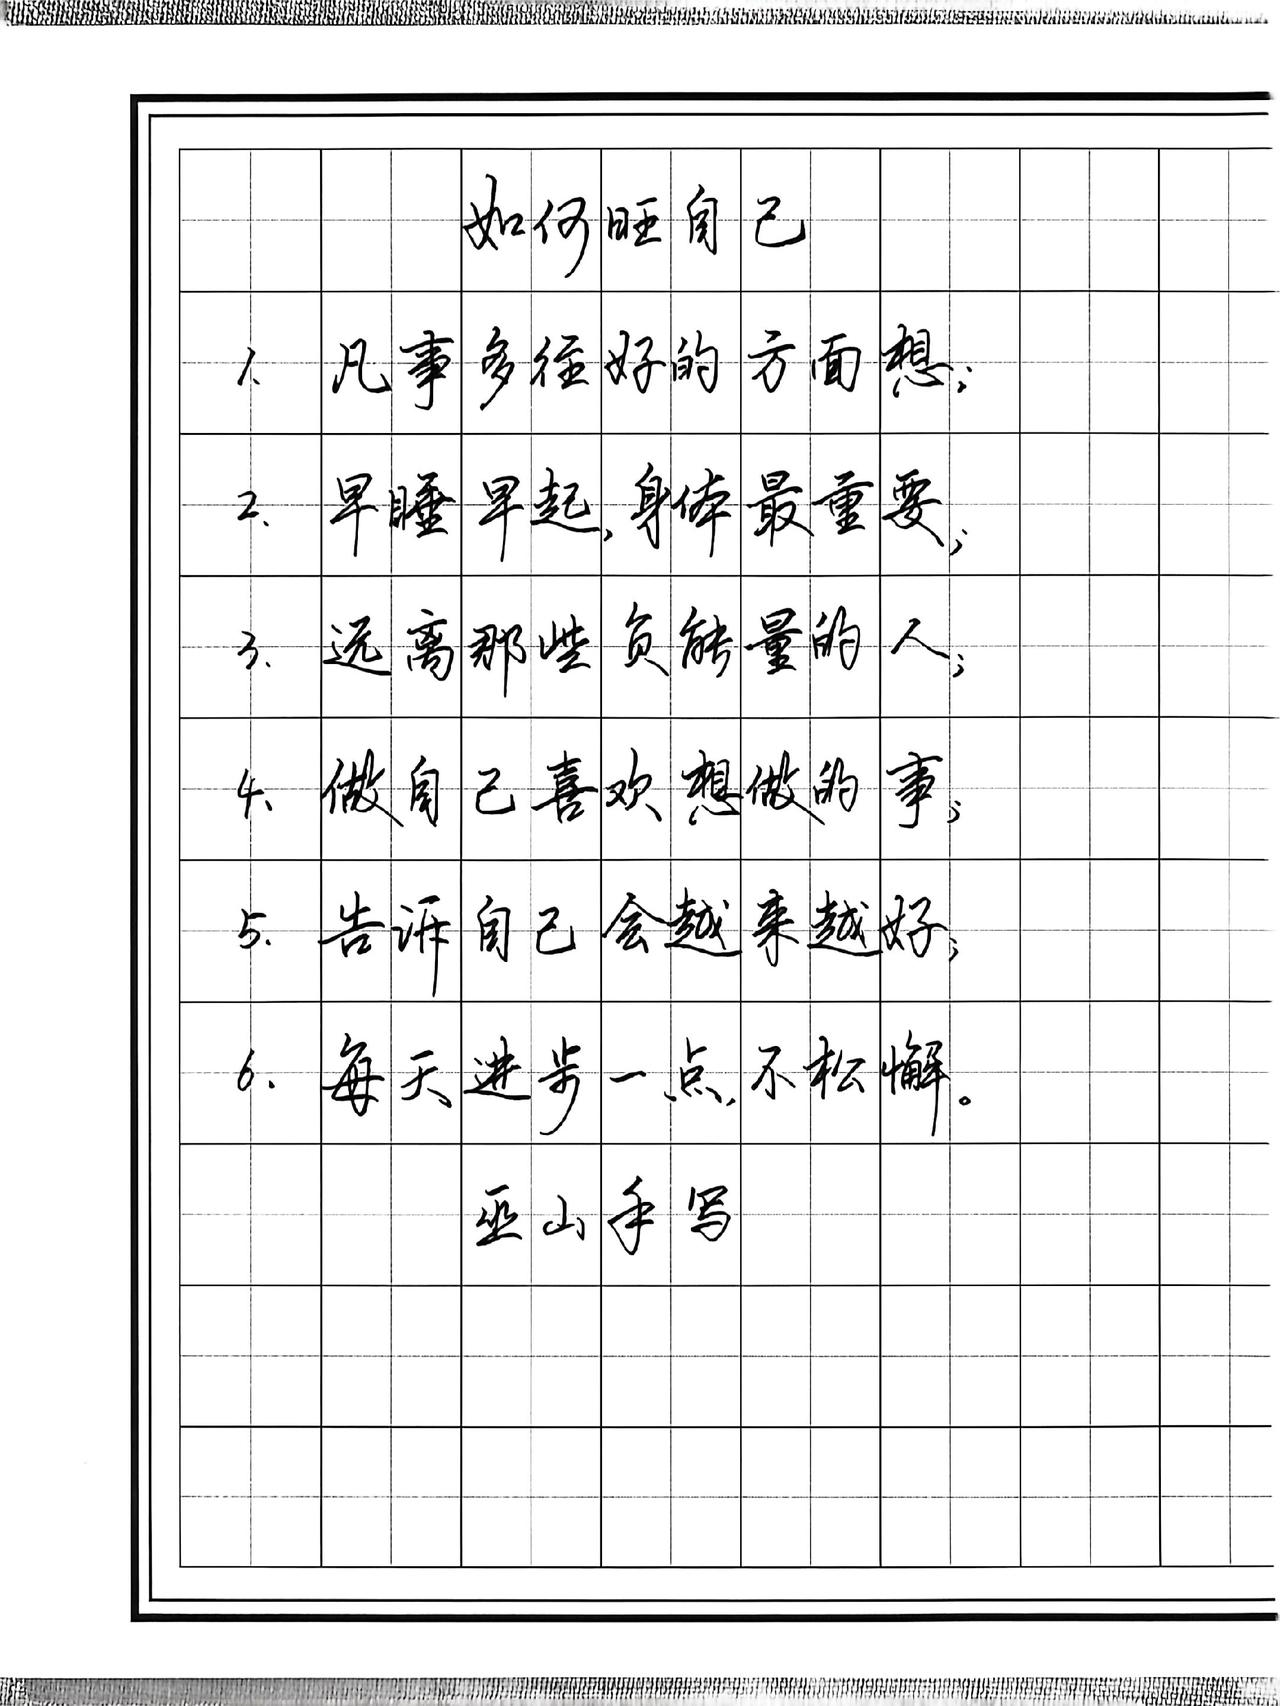 如何旺自己
1、凡事多往好的方面想；
2、早睡早起，身体最重要；
3、远离那些负能量的人；
4、做自己喜欢想做的事；
5、告诉自己会越来越好；
6、每天进步一点，不松懈。
巫山手写